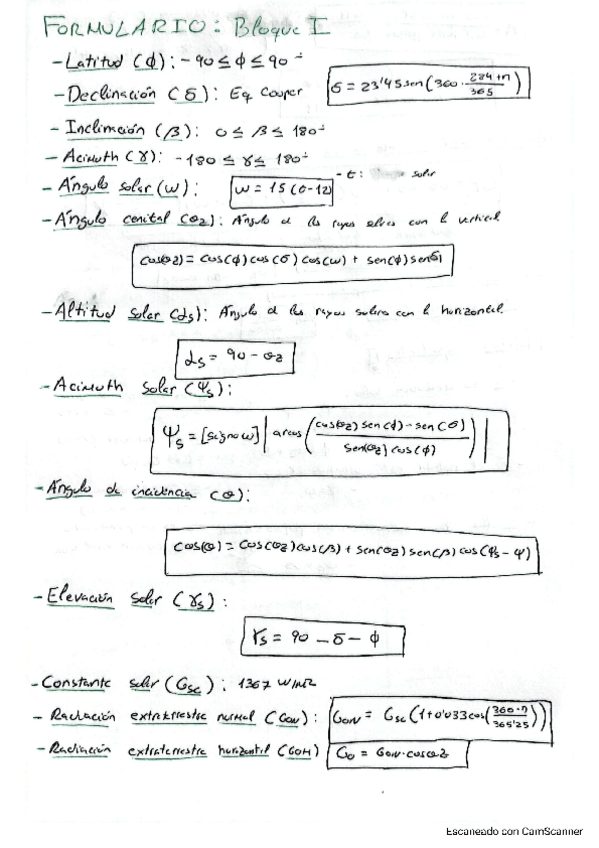 FORMULARIO: Bloque I
- Latitud (ϕ): - 90 ≤ ϕ ≤ 90 º
- Declinación (δ): Eq Couper
δ = 23'45 sen(360 · (284+n)/365)
- Inclinación (β): 0 ≤ β ≤ 180º
- Acimuth (γ): -180 ≤ γ ≤ 180º
- t: solar
- Ángulo solar (ω): ω = 15 (t-12)
- Ángulo cenital (θz): Ángulo de los rayos solares con la vertical
cos(θz) = cos(ϕ) cos(δ) cos(ω) + sen(ϕ) sen δ
- Altitud solar (αs): Ángulo de los rayos solares con la horizontal.
αs = 90 - θz
- Acimuth solar (Ψs):
Ψs = [signo ω] | arcos ( (cos(θz) sen(ϕ) - sen(δ)) / (sen(θz) cos(ϕ)) ) |
- Ángulo de incidencia (θ):
cos(θ) = cos(θz) cos(β) + sen(θz) sen(β) cos(Ψs - Ψ)
- Elevación solar (γs):
γs = 90 - δ - ϕ
- Constante solar (Gsc): 1367 W/m2
- Radiación extraterrestre normal (Gon): Gon = Gsc (1+0'033 cos(360·n/365'25))
- Radiación extraterrestre horizontal (GoH) Go = Gon·cosθz
Escaneado con CamScanner